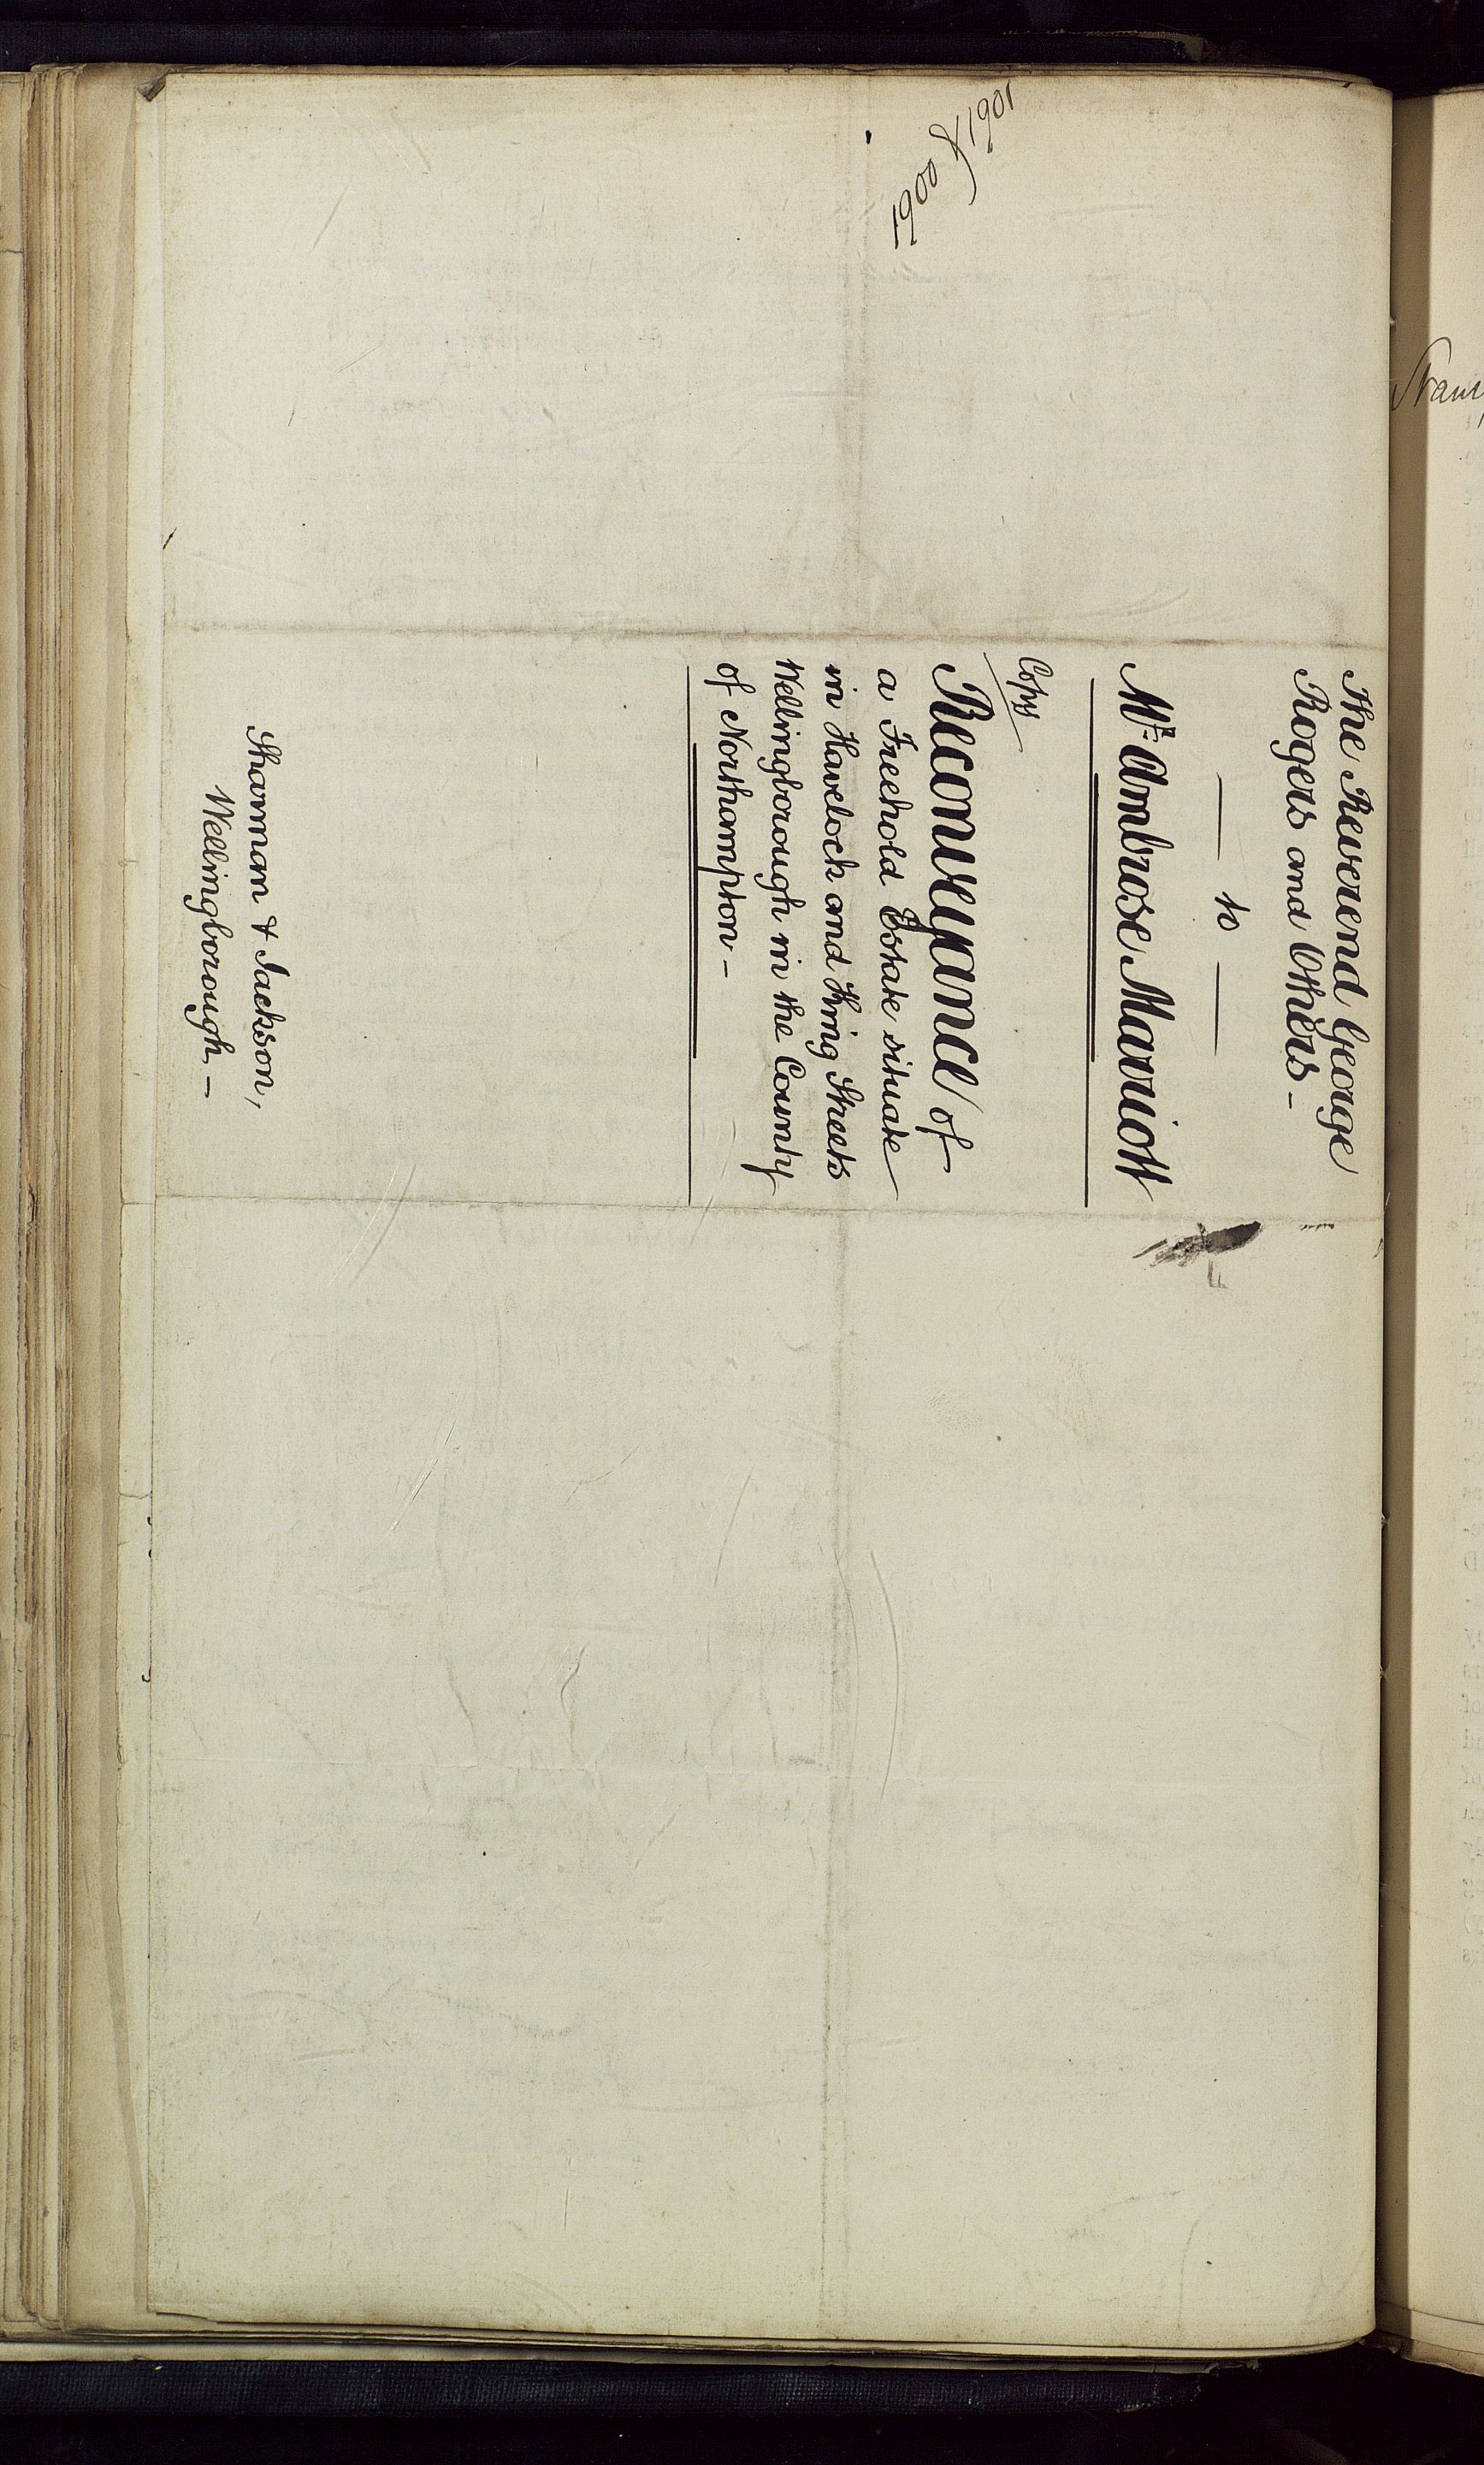 The Reverend George
Rogers and Others –
— to —
Mr. Ambrose Marriott
Copy
Reconveyance of
a Freehold Estate situate
in Havelock and King Streets
Wellingborough in the County
of Northampton –
Sharman & Jackson,
Wellingborough –
1900 & 1901